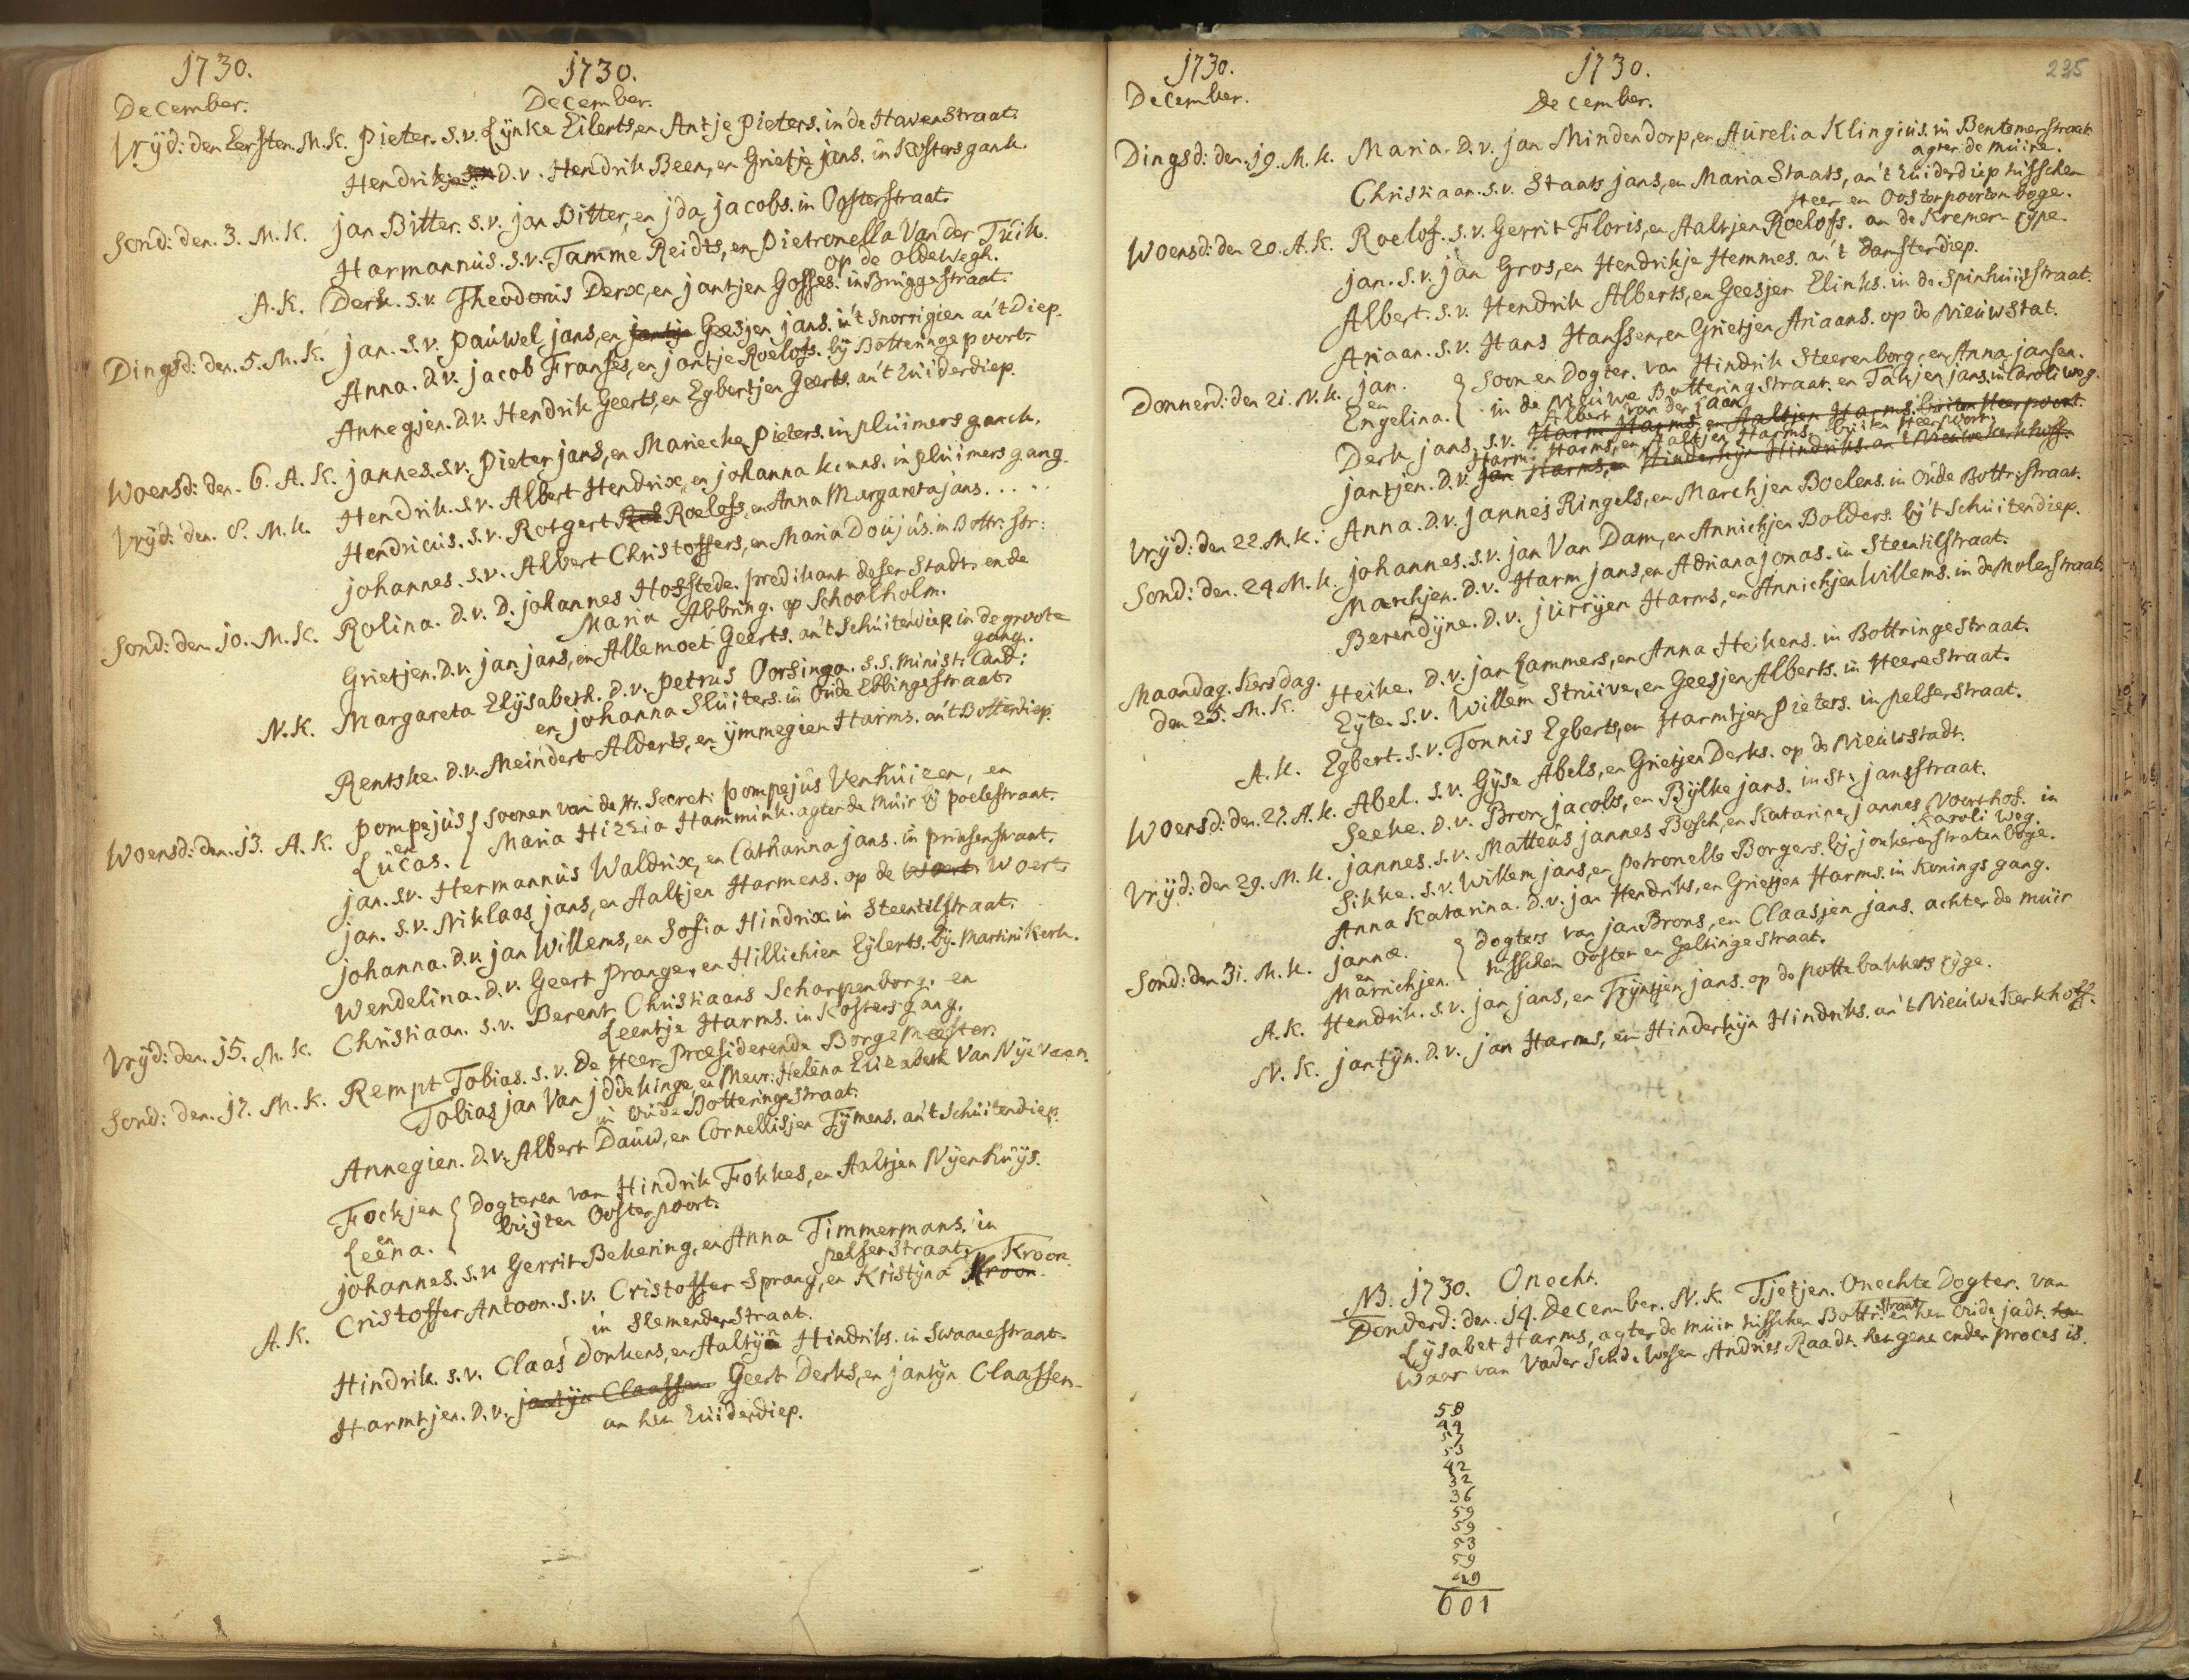 1730. 1730.
December. December.
Vrÿd: den Eersten. M.K. Pieter. s.v. Lÿnke Eilerts, en Antje Pieters. in de Havenstraat.
Hendrikje D.v. Hendrik Been, en Grietje jans. in Kostersgank.
Sond: den. 3. M.K. jan Bitter. s.v. jan Bitter, en jda jacobs. in Oosterstraat.
Harmannus. s.v. Tamme Reidts, en Pietronella Van der Tuik.
op de oldewegh.
A.K. Derk. s.v. Theodorus Derx, en jantjen Gosses. in Bruggestraat.
Dingsd: den. 5. M.K. jan. s.v. Pauwel jans, en jantje Geesjen jans. in't snorrigien an't Diep.
Anna. D.v. jacob Franses, en jantje Roelofs. bÿ Botteringe poort.
Annegjen. D.v. Hendrik Geerts, en Egbertjen Geerts. an't Zuiderdiep.
Woensd: den. 6. A.K. jannes. s.v. Pieter jans, en Mariecke Pieters. in pluimers ganck.
Vrÿd: den. 8. M.K. Hendrik. s.v. Albert Hendrix, en johanna kunns. in pluimers gang.
Hendricus. s.v. Rotgert Roelefs, en Anna Margareta jans. . . . .
johannes. s.v. Albert Christoffers, en Maria Doujus. in Bottr: str:
Sond: den. 10. M.K. Rolina. D.v. D. johannes Hofstede. predikant deser Stadt, ende
Maria Abbring. op Schoolholm.
Grietjen. D.v. jan jans, en Allemoet Geerts. an't Schuitendiep. in de groote
gang.
N.K. Margareta Elÿsabeth. D.v. Petrus Oorsinga. s.s. Minist: Cand:
en johanna Sluiters. in Oude Ebbingestraat.
Rentske. D.v. Meindert Alderts, en ÿmmegien Harms. an't Botterdiep.
Woensd: den. 13. A.K. Pompejus } soonen van de Hr. Secret: Pompejus Venhuizen, en
en
Lucas. Maria Hizzia Hammink. agter de Muir bÿ poelestraat.
jan. s.v. Hermannus Waldrix, en Catharina jans. in prinsenstraat.
jan. s.v. Niklaas jans, en Aaltjen Harmens. op de Woert Woert.
johanna. D.v. jan Willems, en Sofia Hindrix. in Steentilstraat.
Wendelina. D.v. Geert Prange, en Hillichien Eÿlerts. bÿ Martinikerk.
Vrÿd: den. 15. M.K. Christiaan. s.v. Berent Christiaans Scharpenborg. en
Leentje Harms. in Kosters gang.
Sond: den. 17. M.K. Rempt Tobias. s.v. De Heer Præsiderende Borgemeester.
Tobias jan Van jddekinge, en Mevr: Helena Eliesabeth Van Nÿeveen.
in Oude Botteringestraat.
Annegien. D.v. Albert Dauw, en Cornellisjen Tÿmens. an't Schuitendiep.
Fockjen { Dogteren van Hindrik Fokkes, en Aaltjen Nÿenhuÿs.
en
Leena. buÿten Oosterpoort.
johannes. s.v. Gerrit Bekering, en Anna Timmermans. in
pelserstraat.
A.K. Cristoffer Antoon. s.v. Cristoffer Sprang, en Kristÿna Kroon. Kroon.
in Slemenderstraat.
Hindrik. s.v. Claas Donkens, en Aaltÿn Hindriks. in Swaanestraat.
Harmtjen. D.v. jantÿn Claassen. Geert Derks, en jantÿn Claassen
an het Zuiderdiep.
1730. 1730. 235
December. December.
Dingsd: den. 19. M.K. Maria. D.v. jan Mindendorp, en Aurelia Klingius. in Bentemerstraat.
agter de muire.
Christiaan. s.v. Staats jans, en Maria Staats, an't Zuiderdiep tusschen
Heer en Oosterpoorten boge.
Woensd: den 20. A.K. Roelof. s.v. Gerrit Floris, en Aaltjen Roelofs. an de Kremers rÿpe.
jan. s.v. jan Gros, en Hendrikje Hemmes. an't Damsterdiep.
Albert. s.v. Hendrik Alberts, en Geesjen Elinks. in de Spinhuisstraat.
Ariaan. s.v. Hans Hanssen, en Grietjen Ariaans. op de Nieuwstat.
Donnerd: den 21. N.K. jan. } Soon en Dogter. van Hindrik Steerenborg, en Anna jansen.
en
Engelina. in de Nieuwe Botteringstraat.
Albert Van der Laan en Tatjen jans. in Caroli weg.
Derk jans. s.v. Harm Harms, en Aaltjen Harms. buiten Heerpoort.
Harm Harms, en Aaltjen Harms. buiten Heerpoort.
jantjen. D.v. jan Harms, en Hinderkÿn Hindriks. an't Nieuwe kerkhoff.
Vrÿd: den 22. M.K. Anna. D.v. jannes Ringels, en Marchjen Boelens. in Oude Bottr: straat.
Sond: den. 24. M.K. johannes. s.v. jan Van Dam, en Annichjen Bolders. bÿ't Schuitendiep.
Marchjen. D.v. Harm jans, en Adriana jonas. in Steentilstraat.
Berendÿne. D.v. jurrÿen Harms, en Annichjen Willems. in de Molenstraat.
Maandag. Kersdag.
den 25. M.K. Heike. D.v. jan Lammers, en Anna Heikens. in Bottringestraat.
Eÿte. s.v. Willem Struive, en Geesjen Alberts. in Heerestraat.
A.K. Egbert. s.v. Tonnis Egberts, en Harmtjen Pieters. in pelserstraat.
Woensd: den. 27. A.K. Abel. s.v. Gÿse Abels, en Grietjen Derks. op de Nieuwstadt.
Seeke. D.v. Bron jacobs, en Bÿlke jans. in St: jansstraat.
Vrÿd: den 29. M.K. jannes. s.v. Matteus jannes Bosch, en Katarina jannes Voorthof. in
Karoli weg.
Sikke. s.v. Willem jans, en Petronella Borgers. bÿ jonkerenstraten boge.
Anna Katarina. D.v. jan Hendriks, en Grietjen Harms. in Konings gang.
Sond: den 31. M.K. jannæ. } Dogters van jan Brons, en Claasjen jans. achter de muir
en
Marrichjen. tusschen Ooster en Geltinge straat.
A.K. Hendrik. s.v. jan jans, en Trÿntjen jans. op de pottebakkers rÿge.
N.K. jantÿn. D.v. jan Harms, en Hinderkÿn Hindriks. an't Nieuwe Kerkhoff.
NB. 1730. Onecht.
Donderd: den. 14. December. N.K. Tjetjen. Onechte Dogter. van
Lÿsabet Harms, agter de muir tusschen Bottr: straat en het Oude jadt.
Waar van Vader Solde Wesen Andries Raadt. het gene onder proces is.
58
44
57
53
42
32
36
59
59
53
59
49
601